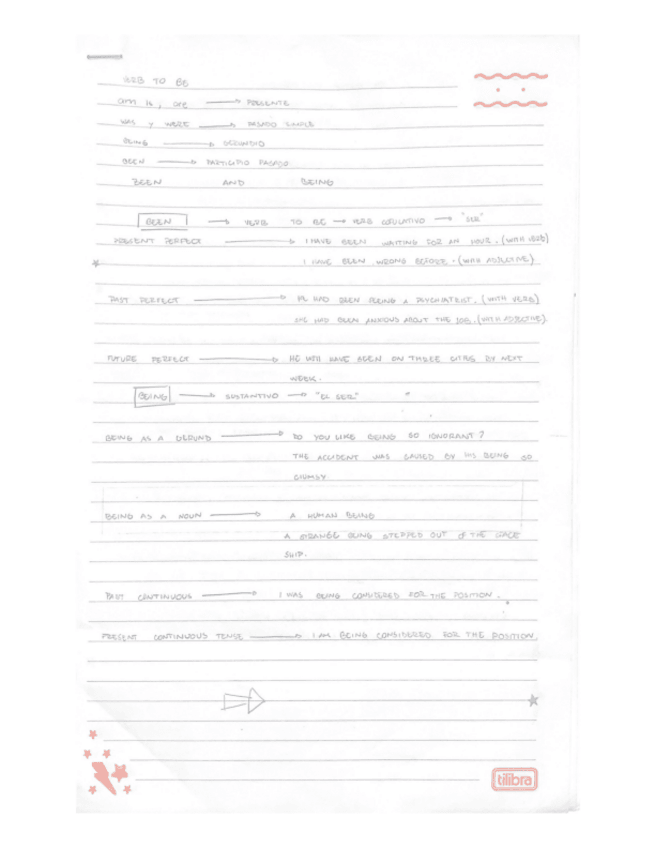 VERB TO BE
am is, are → PRESENTE
WAS Y WERE → PASADO SIMPLE
BEING → GERUNDIO
BEEN → PARTICIPIO PASADO
BEEN AND BEING
BEEN → VERB TO BE → VERB COPULATIVO → "SER"
PRESENT PERFECT → I HAVE BEEN WAITING FOR AN HOUR. (WITH VERB)
I HAVE BEEN WRONG BEFORE. (WITH ADJECTIVE)
PAST PERFECT → HE HAD BEEN SEEING A PSYCHIATRIST. (WITH VERB)
SHE HAD BEEN ANXIOUS ABOUT THE JOB. (WITH ADJECTIVE).
FUTURE PERFECT → HE WILL HAVE BEEN ON THREE CITIES BY NEXT
WEEK.
BEING → SUSTANTIVO → "EL SER"
BEING AS A GERUND → DO YOU LIKE BEING SO IGNORANT?
THE ACCIDENT WAS CAUSED BY HIS BEING SO
CLUMSY.
BEING AS A NOUN → A HUMAN BEING
A STRANGE BEING STEPPED OUT OF THE SPACE
SHIP.
PAST CONTINUOUS → I WAS BEING CONSIDERED FOR THE POSITION.
PRESENT CONTINUOUS TENSE → I AM BEING CONSIDERED FOR THE POSITION.
tilibra